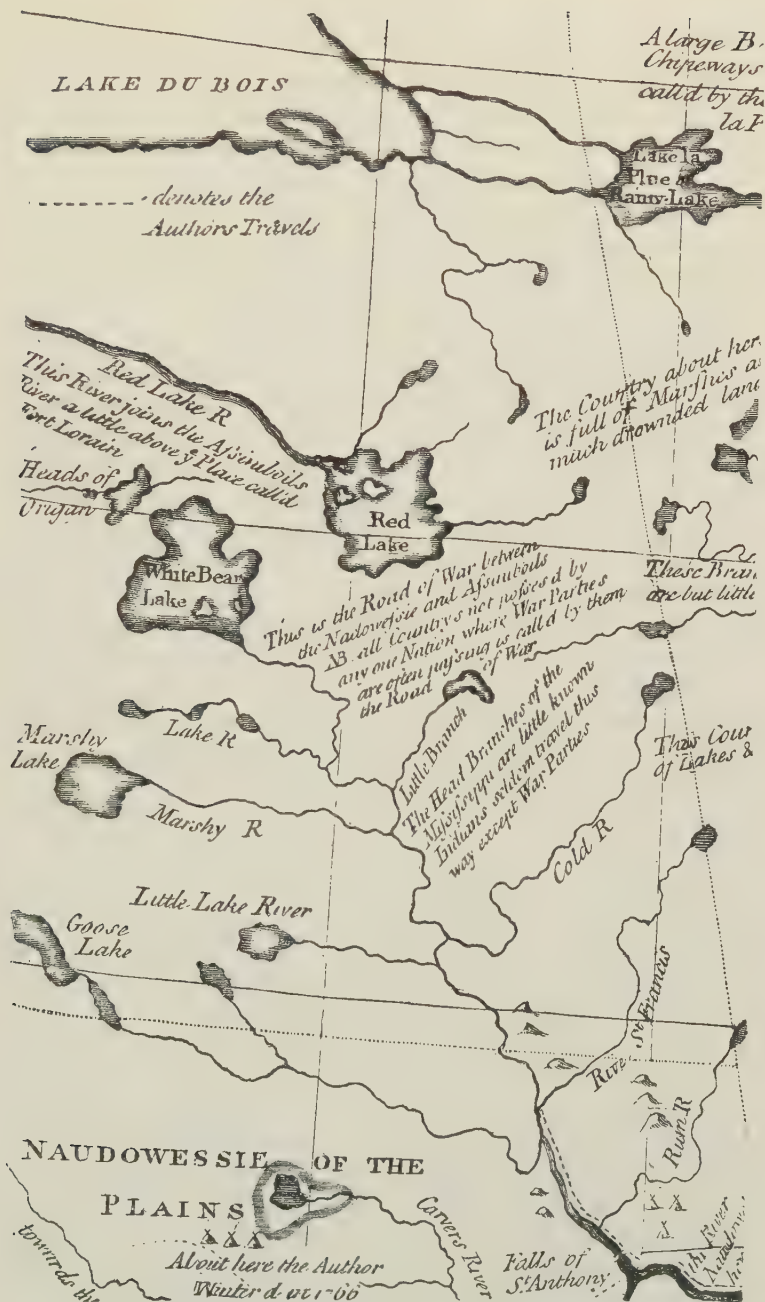 LAKE DU BOIS
A large B
Chipeways
call'd by the
la P
Lake la
Plue or
Rainy Lake
denotes the
Authors Travels
Red Lake R
This River joins the Assiniboils
River a little above ye Place call'd
Fort Lorain
The Country about her
is full of Marshes a
much drownded land
Heads of
Origan
Red
Lake
White Bear
Lake
This is the Road of War between
the Nadowessie and Assiniboils
NB. all Countrys not posses'd by
any one Nation where War Parties
are often passing is call'd by them
the Road of War
These Bran
are but little
Lake R
Little Branch
The Head Branches of the
Mysisyppi are little known
Indians seldom travel this
way except War Parties
Marshy
Lake
Marshy R
This Cour
of Lakes &
Cold R
Little Lake River
Goose
Lake
River St Francis
Rum R
NAUDOWESSIE OF THE
PLAINS
About here the Author
Winter'd in 1766
Carvers River
towards the
Falls of
St Anthony
River